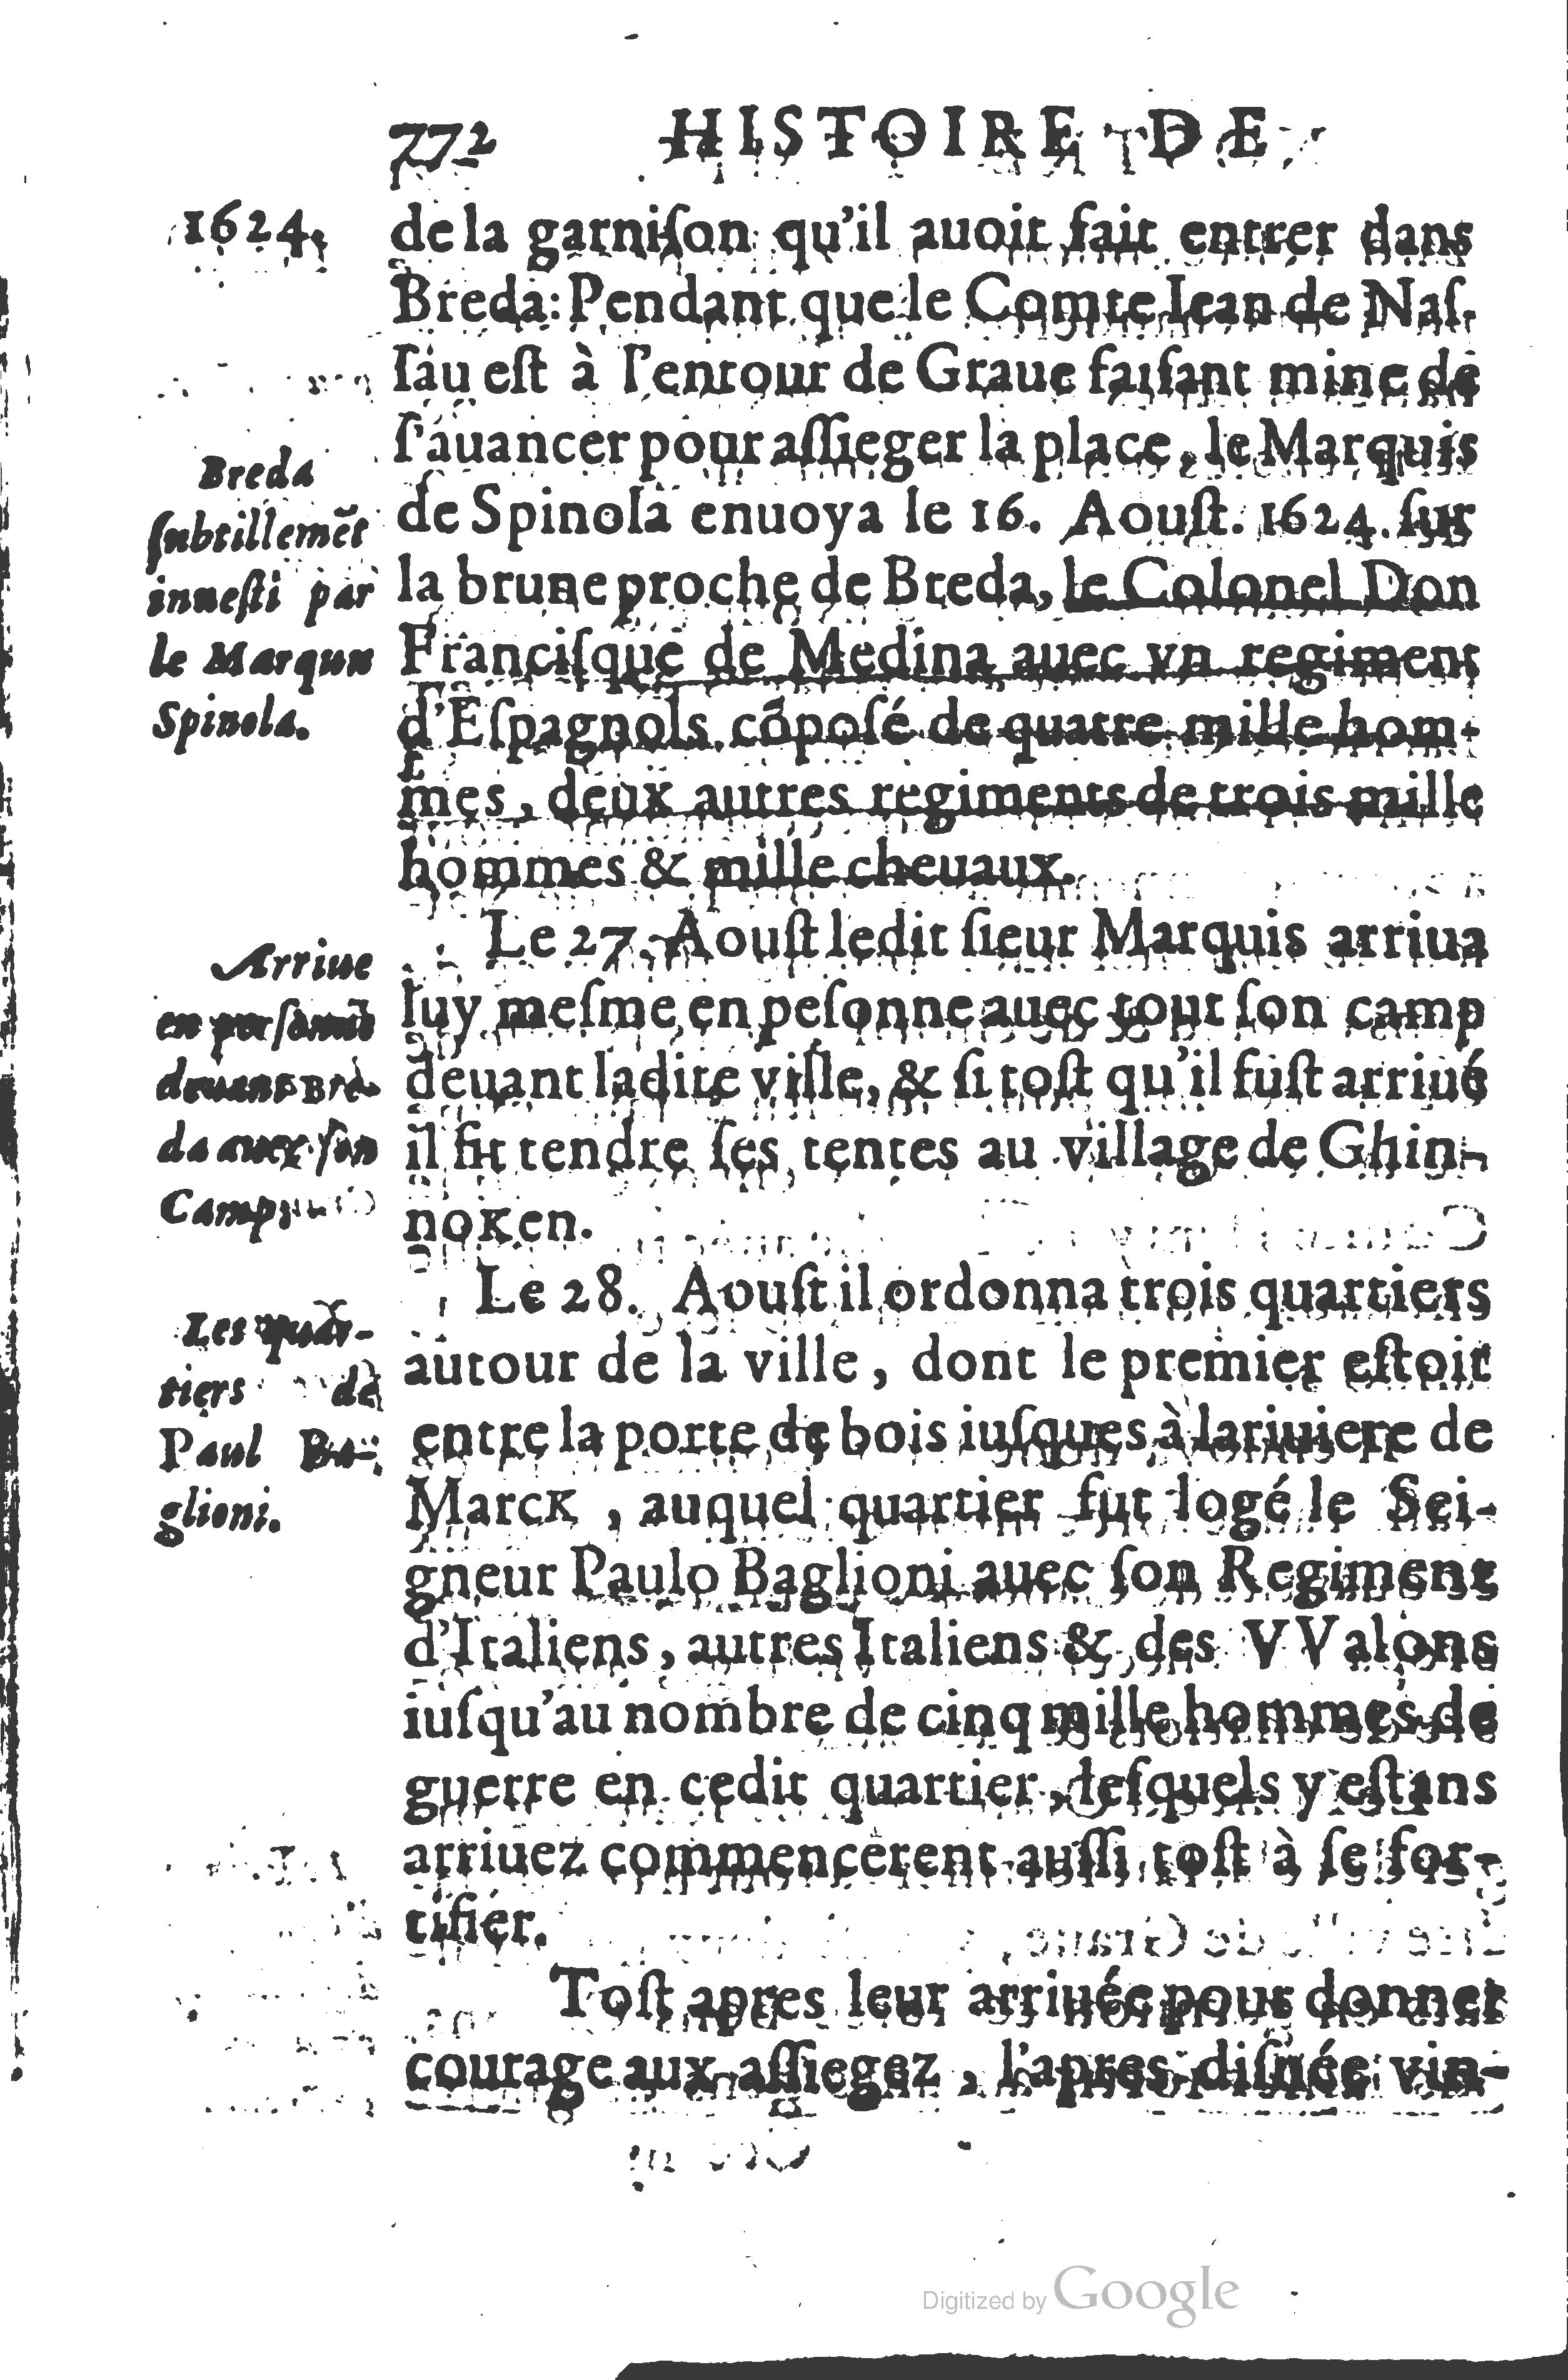 772 HISTOIRE DE
1624.
de la garniſon qu'il auoit fait entrer dans
Breda: Pendant que le Comte Iean de Naſ-
ſau eſt à l'entour de Graue faiſant mine de
ſ'auancer pour aſſieger la place, le Marquis
de Spinola enuoya le 16. Aouſt. 1624. ſur
la brune proche de Breda, le Colonel Don
Franciſque de Medina auec vn regiment
d'Eſpagnols cõpoſé de quatre mille hom-
mes, deux autres regiments de trois mille
hommes & mille cheuaux.
Breda
ſubtillemẽt
inueſti par
le Marquis
Spinola.
Le 27. Aouſt ledit ſieur Marquis arriua
luy meſme en peſonne auec tout ſon camp
deuant ladite ville, & ſi toſt qu'il fuſt arriué
il fit tendre ſes tentes au village de Ghin-
noKen.
Arriue
en perſonne
deuant Bre-
da auec ſon
Camp
Le 28. Aouſt il ordonna trois quartiers
autour de la ville, dont le premier eſtoit
entre la porte de bois iuſques à la riuiere de
MarcK, auquel quartier fut logé le Sei-
gneur Paulo Baglioni auec ſon Regiment
d'Italiens, autres Italiens & des VValons
iuſqu'au nombre de cinq mille hommes de
guerre en cedit quartier, leſquels y eſtans
arriuez commencerent auſſi toſt à ſe for-
tifier.
Les quar-
tiers de
Paul Ba-
glioni.
Toſt apres leur arriuée pour donner
courage aux aſſiegez, l'apres-diſnée vin-
Digitized by Google